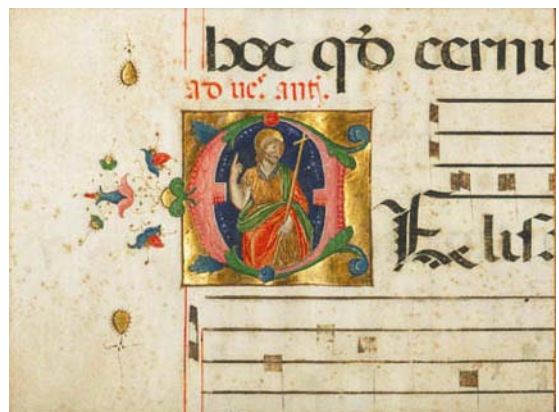 hoc qđ cernu
ad ueſ. antį.
Eliſ